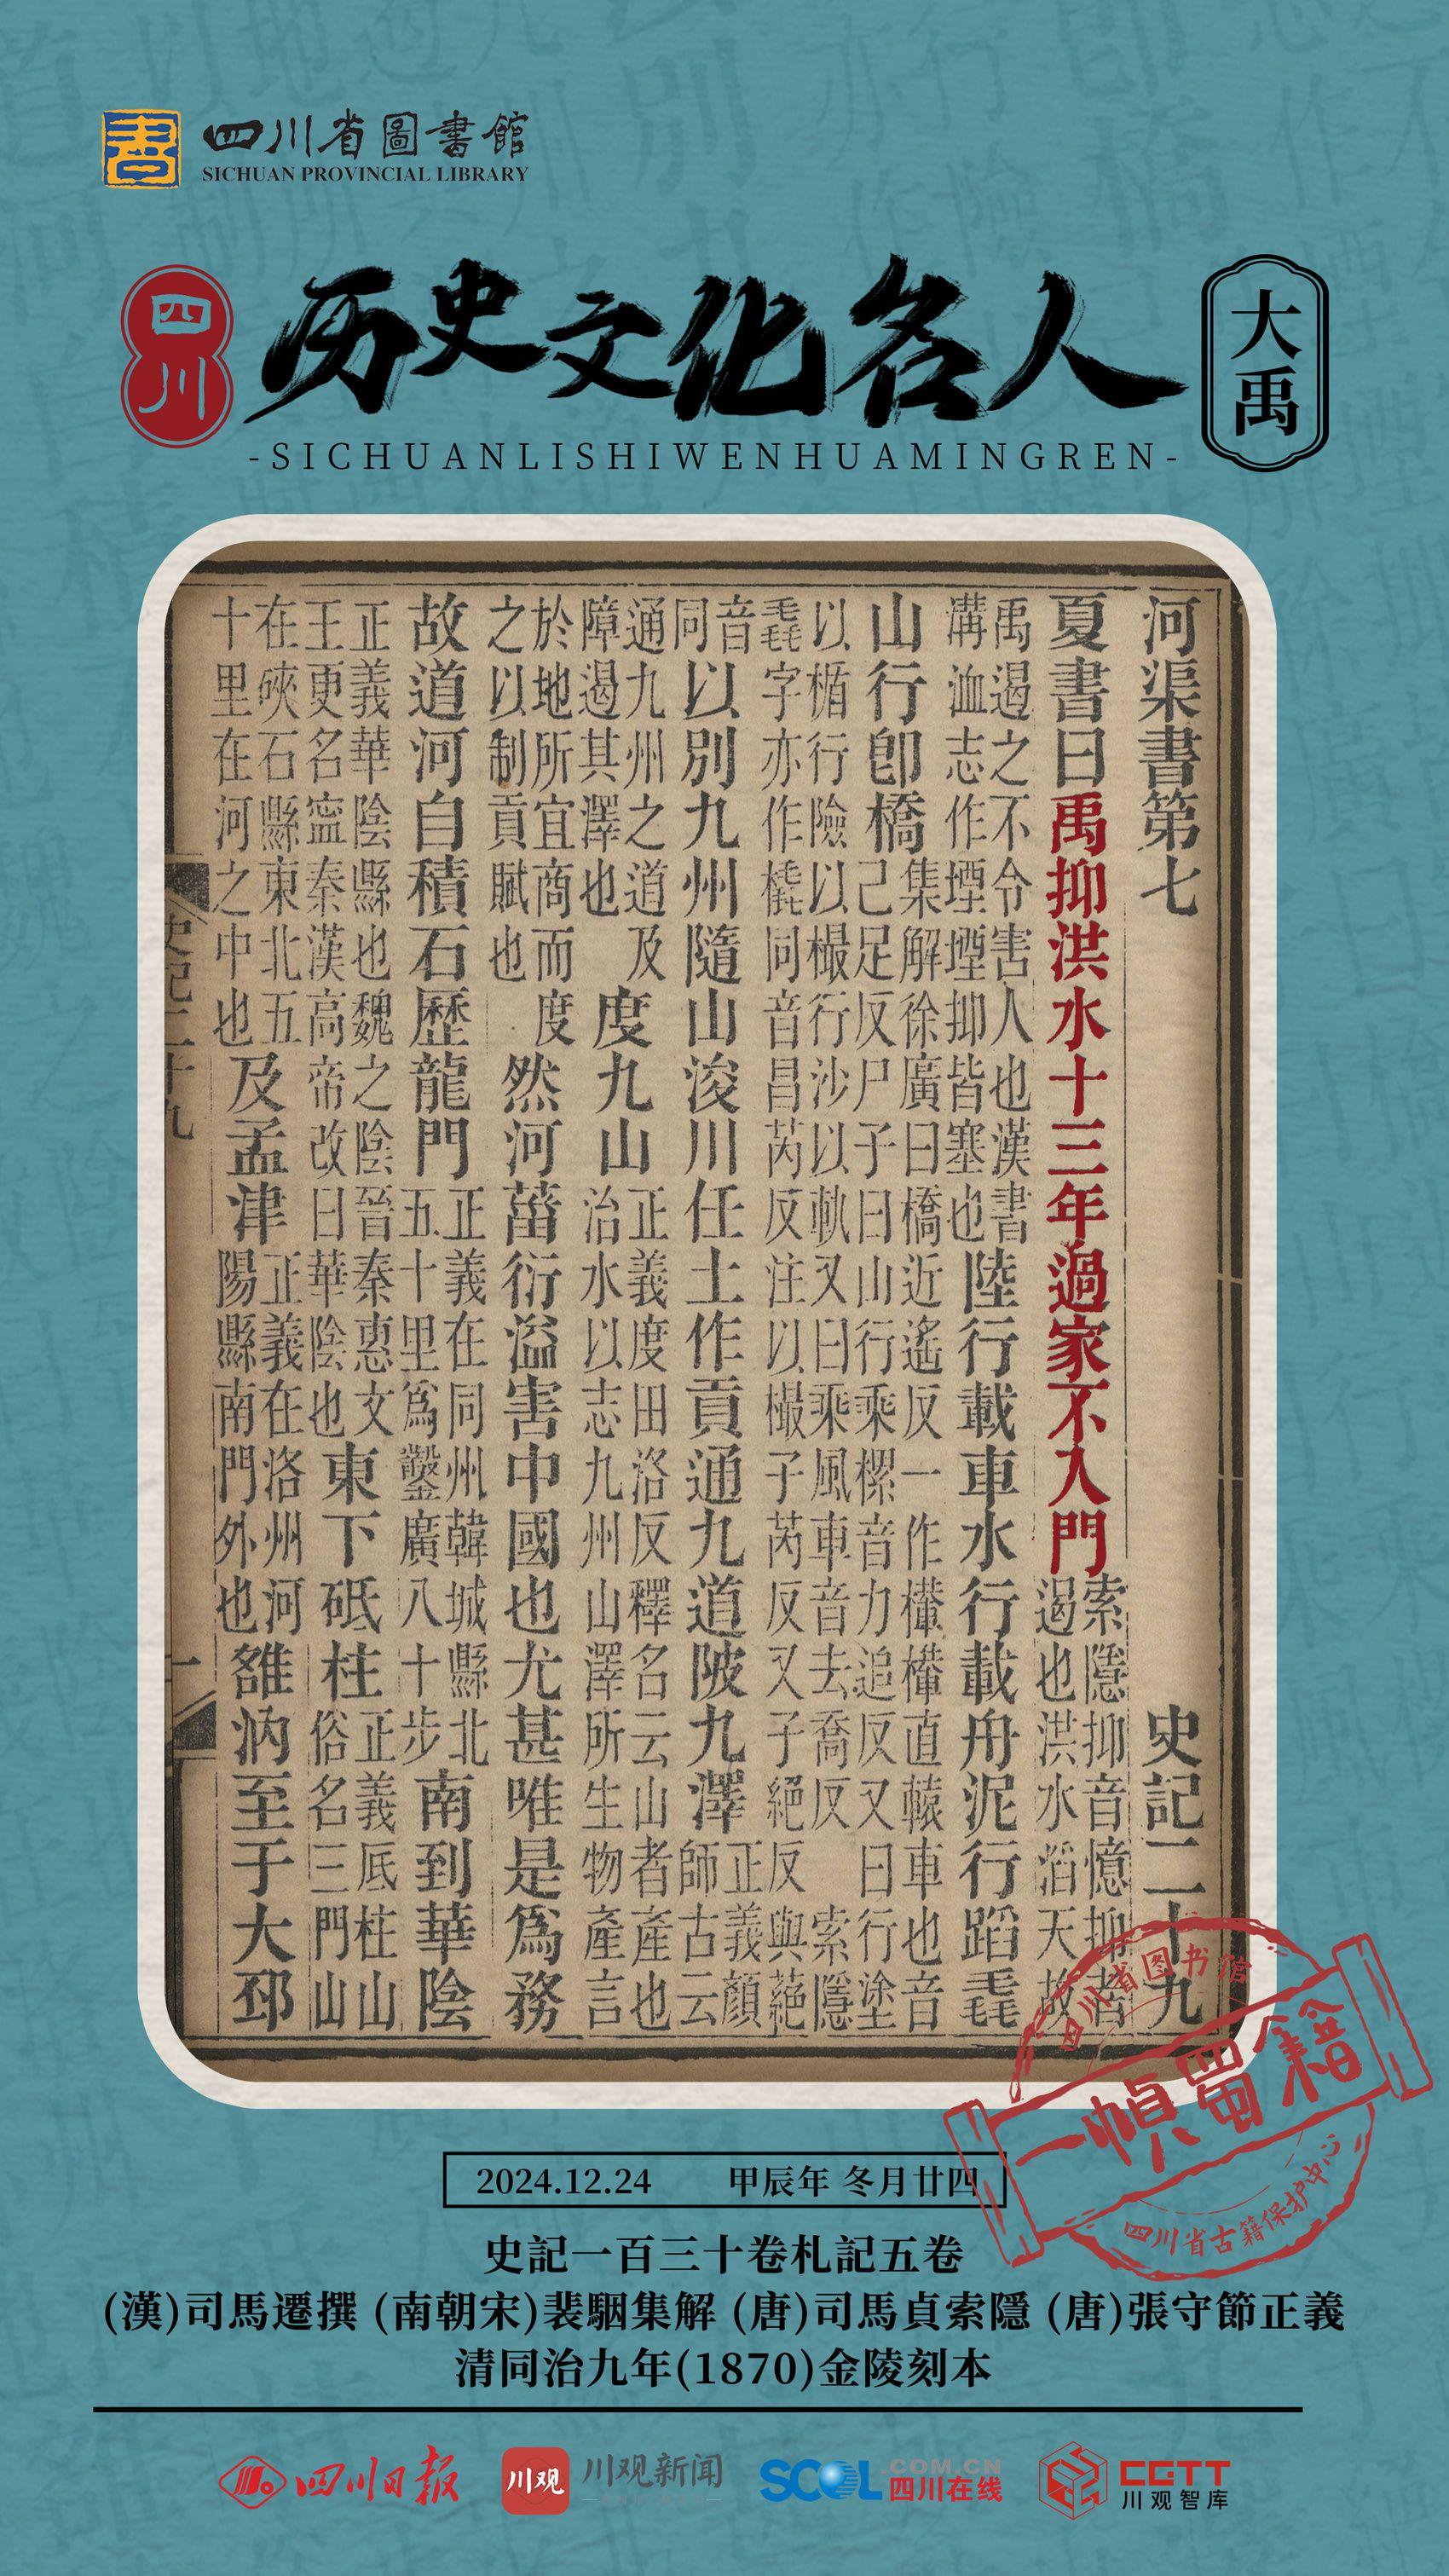 四川省圖書館
SICHUAN PROVINCIAL LIBRARY
四川
历史文化名人
大禹
-SICHUANLISHIWENHUAMINGREN-
河渠書第七 史記二十九
夏書曰禹抑洪水十三年過家不入門索隱抑音憶抑者遏也洪水滔天故
禹遏之不令害人也漢書溝洫志作堙堙抑皆塞也陸行載車水行載舟泥行蹈毳
山行卽橋集解徐廣曰橋近遙反一作檋檋直轅車也音己足反尸子曰山行乘樏音力追反又曰行塗
以楯行險以樶行沙以軌又曰乘風車音去喬反索隱毳字亦作橇同音昌芮反注以樶子芮反又子絕反與蕝
音同以別九州隨山浚川任土作貢通九道陂九澤正義顏師古云
通九州之道及障遏其澤也度九山正義度田洛反釋名云山者產也治水以志九州山澤所生物產言
於地所宜商而度之以制貢賦也然河菑衍溢害中國也尤甚唯是爲務
故道河自積石歷龍門正義在同州韓城縣北五十里爲鑿廣八十步南到華陰
正義華陰縣也魏之陰晉秦惠文王更名寍秦漢高帝改曰華陰也東下砥柱正義底柱山俗名三門山
在硤石縣東北五十里在河之中也及孟津正義在洛州河陽縣南門外也雒汭至于大邳
史記二十九 一
四川省图书馆
一幀蜀籍
四川省古籍保护中心
2024.12.24 甲辰年 冬月廿四
史記一百三十卷札記五卷
(漢)司馬遷撰 (南朝宋)裴駰集解 (唐)司馬貞索隱 (唐)張守節正義
清同治九年(1870)金陵刻本
四川日报
川观 川观新闻
SCOL.COM.CN 四川在线
CGTT 川观智库